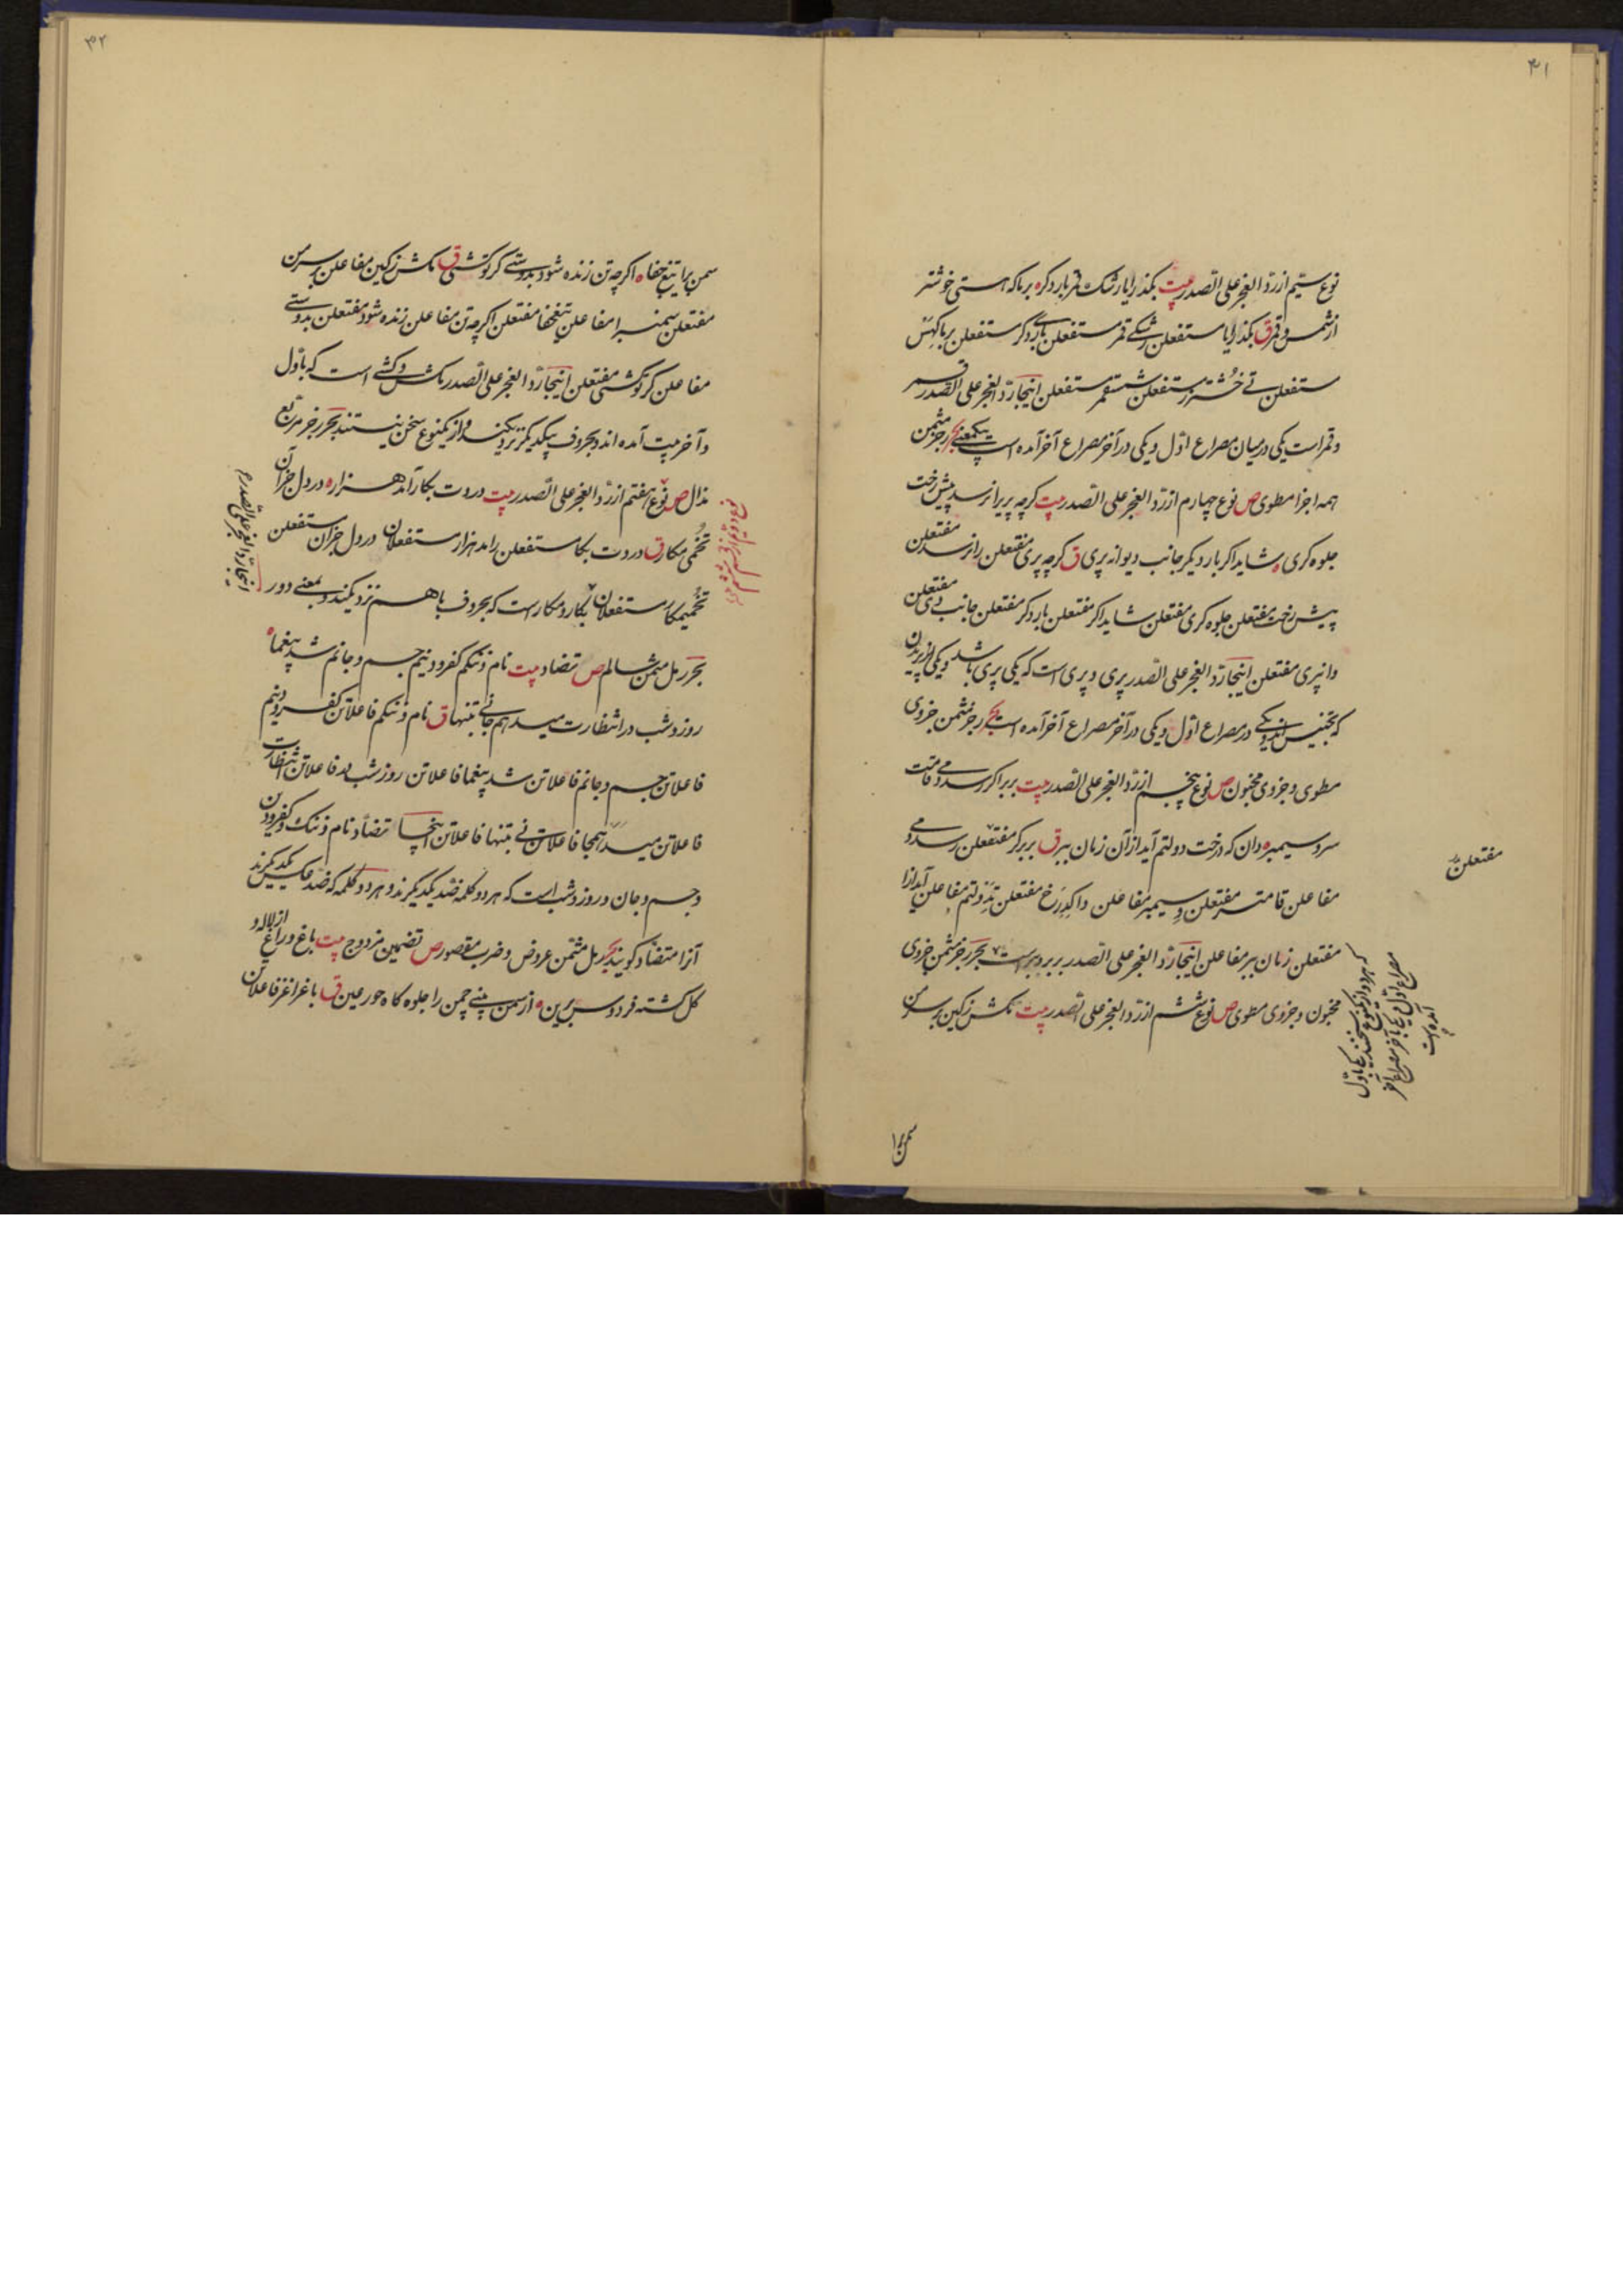 ۴۱
نوع سیم از ردّ العجز علی الصدر بیت بکذر ایا رشک قمر بار دکر ه بر ما که هستی خوشتر
از شمس و قمر ق بکذر ایا مستفعلن رشکی قمر مستفعلن باری دکر مستفعلن بر ما کهس
مستفعلن تی خشتر ز مستفعلن شمسقمر مستفعلن اینجا ردّ العجز علی الصدر قمر
و قمر است یکی در میان مصراع اوّل و یکی در آخر مصراع آخر آمده است بیکمعنی بحر رجز مثمن
همه اجزا مطوی ص نوع چهارم از ردّ العجز علی الصدر بیت کرچه پری را نرسد پیش رخت
جلوه کری ه شاید اکر بار دیکر جانب دیوانه پری ق کرچه پری مفتعلن را نرسد مفتعلن
پیش رخت مفتعلن جلوه کری مفتعلن شاید اکر مفتعلن بار دکر مفتعلن جانب دی مفتعلن
وانپری مفتعلن اینجا ردّ العجز علی الصدر پری و پری است که یکی پری باشد و یکی از پریدن
که تجنیس اند و یکی در مصراع اوّل و یکی در آخر مصراع آخر آمده است بحر رجز مثمن جزوی
مطوی و جزوی مخبون ص نوع پنجم از ردّ العجز علی الصدر بیت بر بر اکر رسد دمی قامت
سرو سیمبر ه دان که درخت دولتم آید از آن زمان ببر ق بر بر کر مفتعلن رسد دمی
مفاعلن قامتسر مفتعلن و سیمبر مفاعلن دا کدرخ مفتعلن تدولتم مفاعلن آید ازا
مفتعلن زمان ببر مفاعلن اینجا ردّ العجز علی الصدر بر بر و ببر است بحر رجز مثمن جزوی
مخبون و جزوی مطوی ص نوع ششم از ردّ العجز علی الصدر بیت مکش ز کین بر سر من
مفتعلن
که هر دو از یکنوع سخنند یکی باوّل
مصراع اوّل و یکی بآخر مصراع آخر
آمده است
سمن برا
۴۲
سمن برا تیغ جفا ه اکرچه تن زنده شود بدوستی کر تو کشی ق مکش ز کین مفاعلن بر سر من
مفتعلن سمنبرا مفاعلن تیغجفا مفتعلن اکرچه تن مفاعلن زنده شود مفتعلن بدوستی
مفاعلن کر تو کشی مفتعلن اینجا ردّ العجز علی الصدر مکش و کشی است که باوّل
و آخر بیت آمده اند و بحروف بیکدیکر نزدیکند و از یکنوع سخن نیستند بحر رجز مربع
مذال ص نوع هفتم از ردّ العجز علی الصدر بیت در وت بکار آمد هزار ه در دل جز آن
تخمی مکار ق در وت بکا مستفعلن رامد هزار مستفعلان در دل جزان مستفعلن
تخمیمکار مستفعلان بکار و مکار است که بحروف با هم نزدیکند و بمعنی دور
بحر رمل مثمن سالم ص تضاد بیت نام و ننکم کفر و دینم جسم و جانم شد بیغما ه
روز و شب در انتظارت میدهم جانی بتنها ق نام و ننکم فاعلاتن کفر و دینم
فاعلاتن جسم و جانم فاعلاتن شد بیغما فاعلاتن روز شب در فاعلاتن انتظارت
فاعلاتن میدهمجا فاعلاتن نی بتنها فاعلاتن اینجا تضاد نام و ننک و کفر و دین
و جسم و جان و روز و شب است که هر دو کلمه ضدّ یکدیکرند و هر دو کلمه که ضدّ و عکس یکدیکرند
آنرا متضاد کویند بحر رمل مثمن عروض و ضرب مقصور ص تضمین مزدوج بیت باغ و راغ از لاله و
کل کشته فردوس برین ه از سمن بینی چمن را جلوه کاه حور عین ق باغراغز فاعلاتن
اینجا ردّ العجز علی الصدر